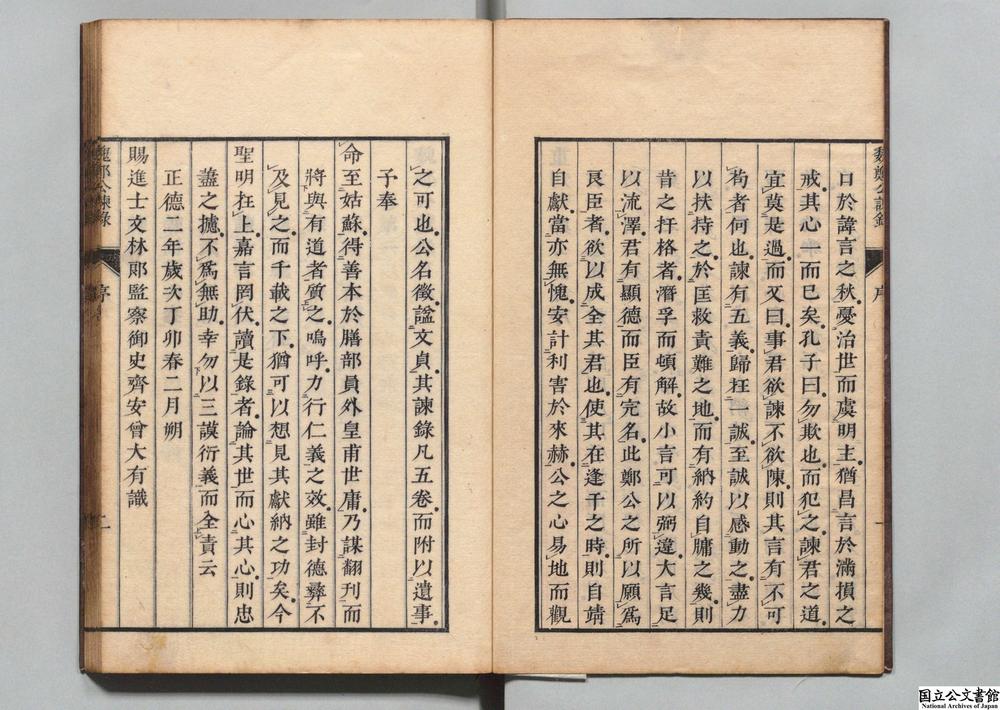 魏鄭公諫錄 序 一
口於諱言之秋憂治世而虞明主猶昌言於滿損之
戒其心一而已矣孔子曰勿欺也而犯之諫君之道
宜莫是過而又曰事君欲諫不欲陳則其言有不可
茍者何也諫有五義歸在一誠至誠以感動之盡力
以扶持之於匡救責難之地而有納約自牖之幾則
昔之扞格者潛孚而頓解故小言可以弼違大言足
以流澤君有顯德而臣有完名此鄭公之所以願爲
良臣者欲以成全其君也使其在逢干之時則自靖
自獻當亦無愧安計利害於來赫公之心易地而觀
之可也公名徵諡文貞其諫錄凡五卷而附以遺事
予奉
命至姑蘇得善本於膳部員外皇甫世庸乃謀翻刊而
將與有道者質之嗚呼力行仁義之效雖封德彝不
及見之而千載之下猶可以想見其獻納之功矣今
聖明在上嘉言罔伏讀是錄者論其世而心其心則忠
藎之攄不爲無助幸勿以三謨衍義而全責云
正德二年歲次丁卯春二月朔
賜進士文林郎監察御史齊安曾大有識
魏鄭公諫錄 序 二
国立公文書館
National Archives of Japan